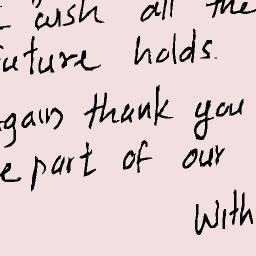 I wish all the
future holds.
again thank you
e part of our
With